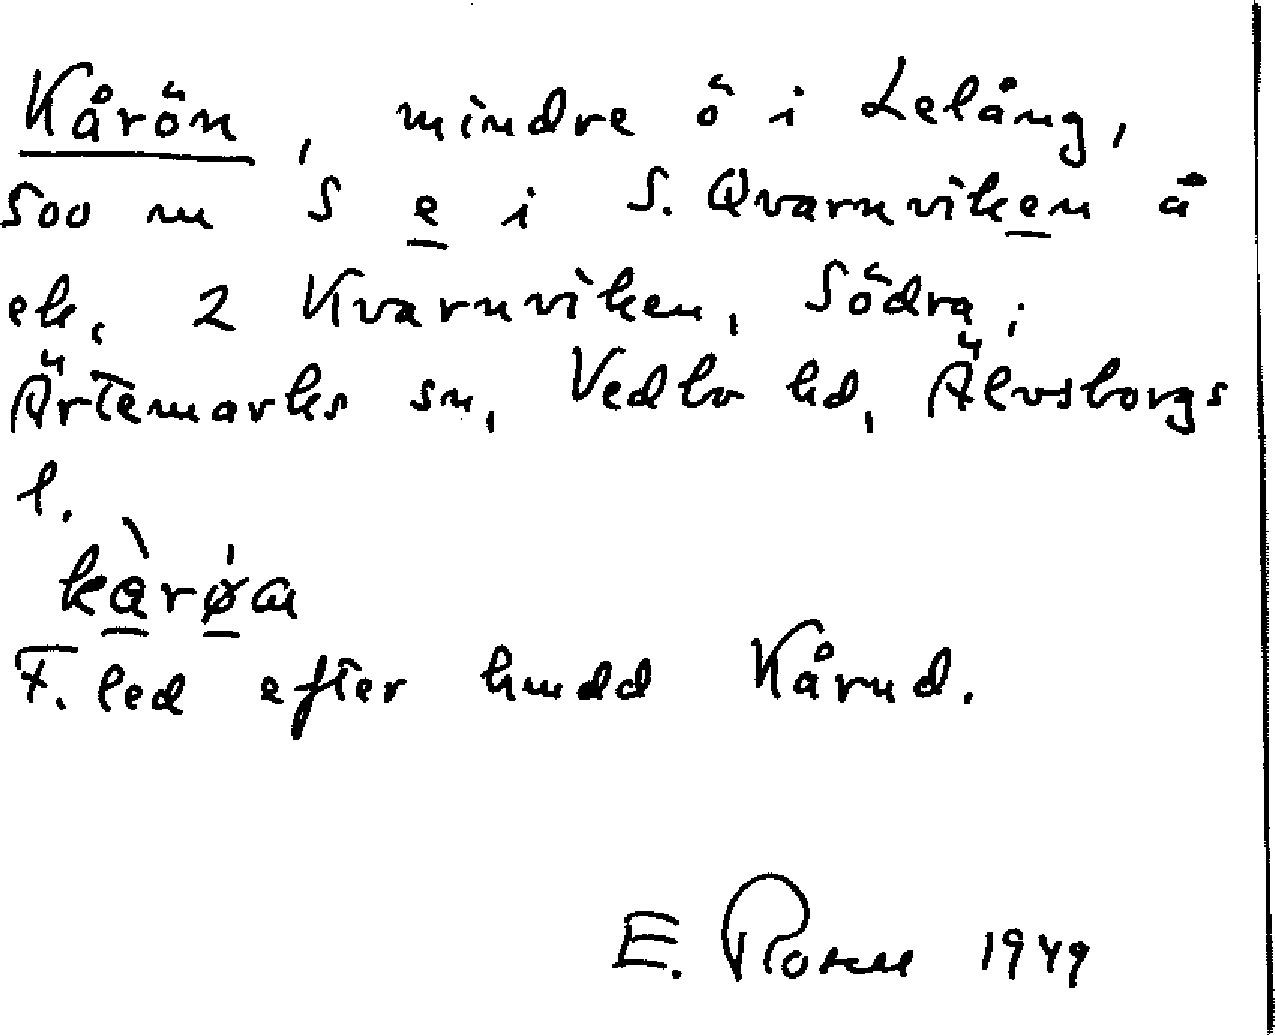 Kårön, mindre ö i Lelång,
500 m S e i S. Qvarnviken å
ek. 2 Kvarnviken, Södra;
Ärtemarks sn, Vedbo hd, Älvsborgs
l.
F. led efter hmdd Kårud.
E. Rosell 1949